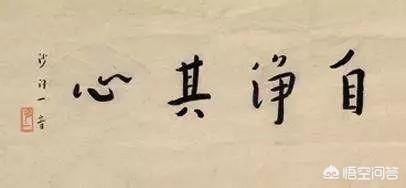 自净其心
沙门一音
悟空问答